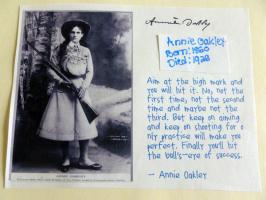 Annie Oakley
Annie Oakley
Born: 1860
Died: 1926
Aim at the high mark and
you will hit it. No, not the
first time, not the second
time and maybe not the
third. But keep on aiming
and keep on shooting for o
nly practice will make you
perfect. Finally you'll hit
the bull's-eye of success.
- Annie Oakley
ANNIE OAKLEY